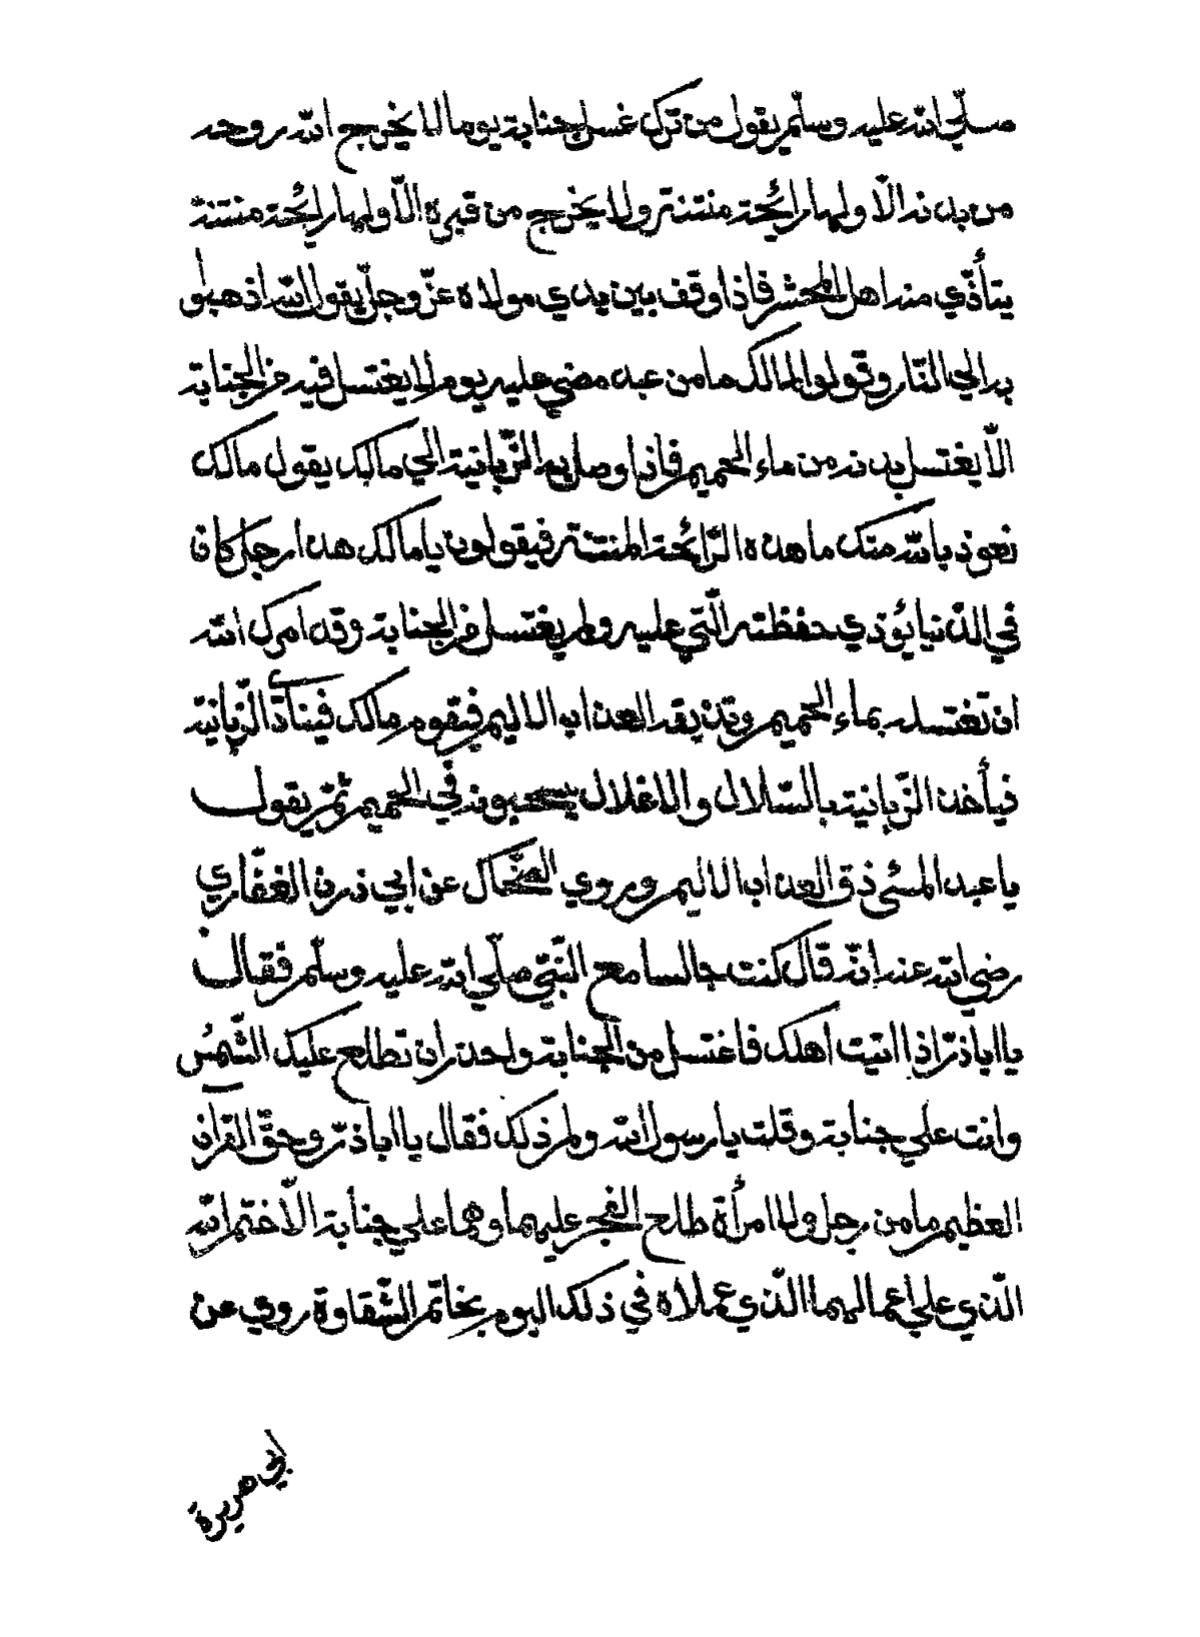 صلّي الله عليه وسلّم يقول من ترك غسل جنابة يوما لا يخرج الله روحه
من بدنه الّا ولها رائحة منتنة ولا يخرج من قبره الّا ولها رائحة منتنة
يتأذّي منه اهل المحشر فاذا وقف بين يدي مولاه عزّ وجلّ يقول الله اذهبوا
به الي النّار وقولوا لمالك ما من عبد مضي عليه يوم لا يغتسل فيه من الجنابة
الّا يغتسل بدنه من ماء الحميم فاذا وصل به الزّبانية الي مالك يقول مالك
نعوذ بالله منك ما هذه الرّائحة المنتنة فيقولون يا مالك هذا رجل كان
في الدّنيا يؤذي حفظته الّتي عليه ولم يغتسل من الجنابة وقد امرك الله
ان تغتسله بماء الحميم وتذيقه العذاب الاليم فيقوم مالك فينادّي الزّبانية
فيأخذ الزّبانية بالسّلال والاغلال يسحبونه في الحميم ثمّ يقول
يا عبد المسئ ذق العذاب الاليم وروي الضّحاك عن ابي ذرن الغفّاري
رضي الله عنه انّه قال كنت جالسا مع النّبيّ صلّي الله عليه وسلّم فقال
يا اباذرّ اذا اتيت اهلك فاغتسل من الجنابة واحذر ان تطلع عليك الشّمس
وانت علي جنابة وقلت يا رسول الله ولم ذلك فقال يا اباذرّ وحقّ القران
العظيم ما من رجل ولا امرأة طلع الفجر عليهما وهما علي جنابة الّا ختم الله
الّذي علي اعمالهما الّذي عملاه في ذلك اليوم بخاتم الشّقاوة روي عن
ابي هريرة